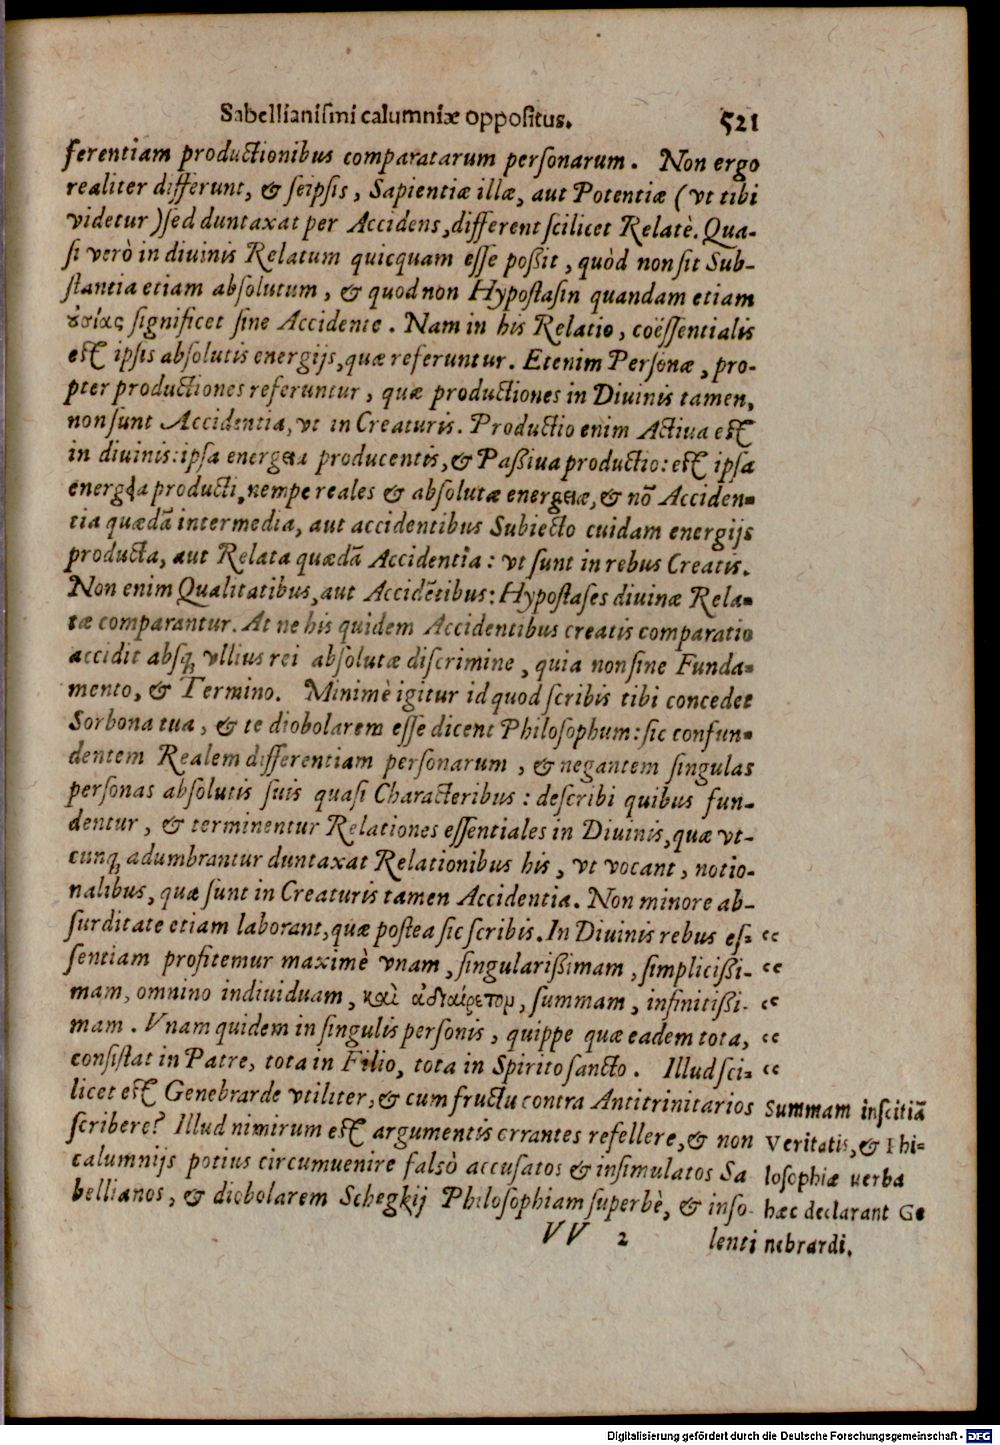 Sabellianismi calumniæ oppositus. 521
ferentiam productionibus comparatarum personarum. Non ergo
realiter differunt, & seipsis, Sapientiæ illæ, aut Potentiæ (vt tibi
videtur) sed duntaxat per Accidens, different scilicet Relatè. Qua-
si verò in diuinis Relatum quicquam esse poßit, quòd non sit Sub-
stantia etiam absolutum, & quod non Hypostasin quandam etiam
ὀσίας significet sine Accidente. Nam in his Relatio, coëssentialis
est ipsis absolutis energijs, quæ referuntur. Etenim Personæ, pro-
pter productiones referuntur, quæ productiones in Diuinis tamen,
non sunt Accidentia, vt in Creaturis. Productio enim Actiua est
in diuinis: ipsa energεια producentis, & Paßiua productio: est ipsa
energεία producti, nempe reales & absolutæ energειæ, & nō Acciden-
tia quædā intermedia, aut accidentibus Subiecto cuidam energijs
producta, aut Relata quædā Accidentia: vt sunt in rebus Creatis.
Non enim Qualitatibus, aut Accidētibus: Hypostases diuinæ Rela-
tæ comparantur. At ne his quidem Accidentibus creatis comparatio
accidit absq́; vllius rei absolutæ discrimine, quia non sine Funda-
mento, & Termino. Minimè igitur id quod scribis tibi concedet
Sorbona tua, & te diobolarem esse dicent Philosophum: sic confun-
dentem Realem differentiam personarum, & negantem singulas
personas absolutis suis quasi Characteribus: describi quibus fun-
dentur, & terminentur Relationes essentiales in Diuinis, quæ vt-
cunq́; adumbrantur duntaxat Relationibus his, vt vocant, notio-
nalibus, quæ sunt in Creaturis tamen Accidentia. Non minore ab-
surditate etiam laborant, quæ postea sic scribis. In Diuinis rebus es- “
sentiam profitemur maximè vnam, singularißimam, simplicißi- “
mam, omnino indiuiduam, καὶ ἀδιαίρετον, summam, infinitißi- “
mam. Vnam quidem in singulis personis, quippe quæ eadem tota, “
consistat in Patre, tota in Filio, tota in Spirito sancto. Illud sci- “
licet est Genebrarde vtiliter, & cum fructu contra Antitrinitarios
scribere? Illud nimirum est argumentis errantes refellere, & non
calumnijs potius circumuenire falsò accusatos & insimulatos Sa
bellianos, & diobolarem Schegkij Philosophiam superbè, & inso-
VV 2 lenti
Summam inscitiā
Veritatis, & Phi-
losophiæ verba
hæc declarant Ge
nebrardi.
Digitalisierung gefördert durch die Deutsche Forschungsgemeinschaft - DFG